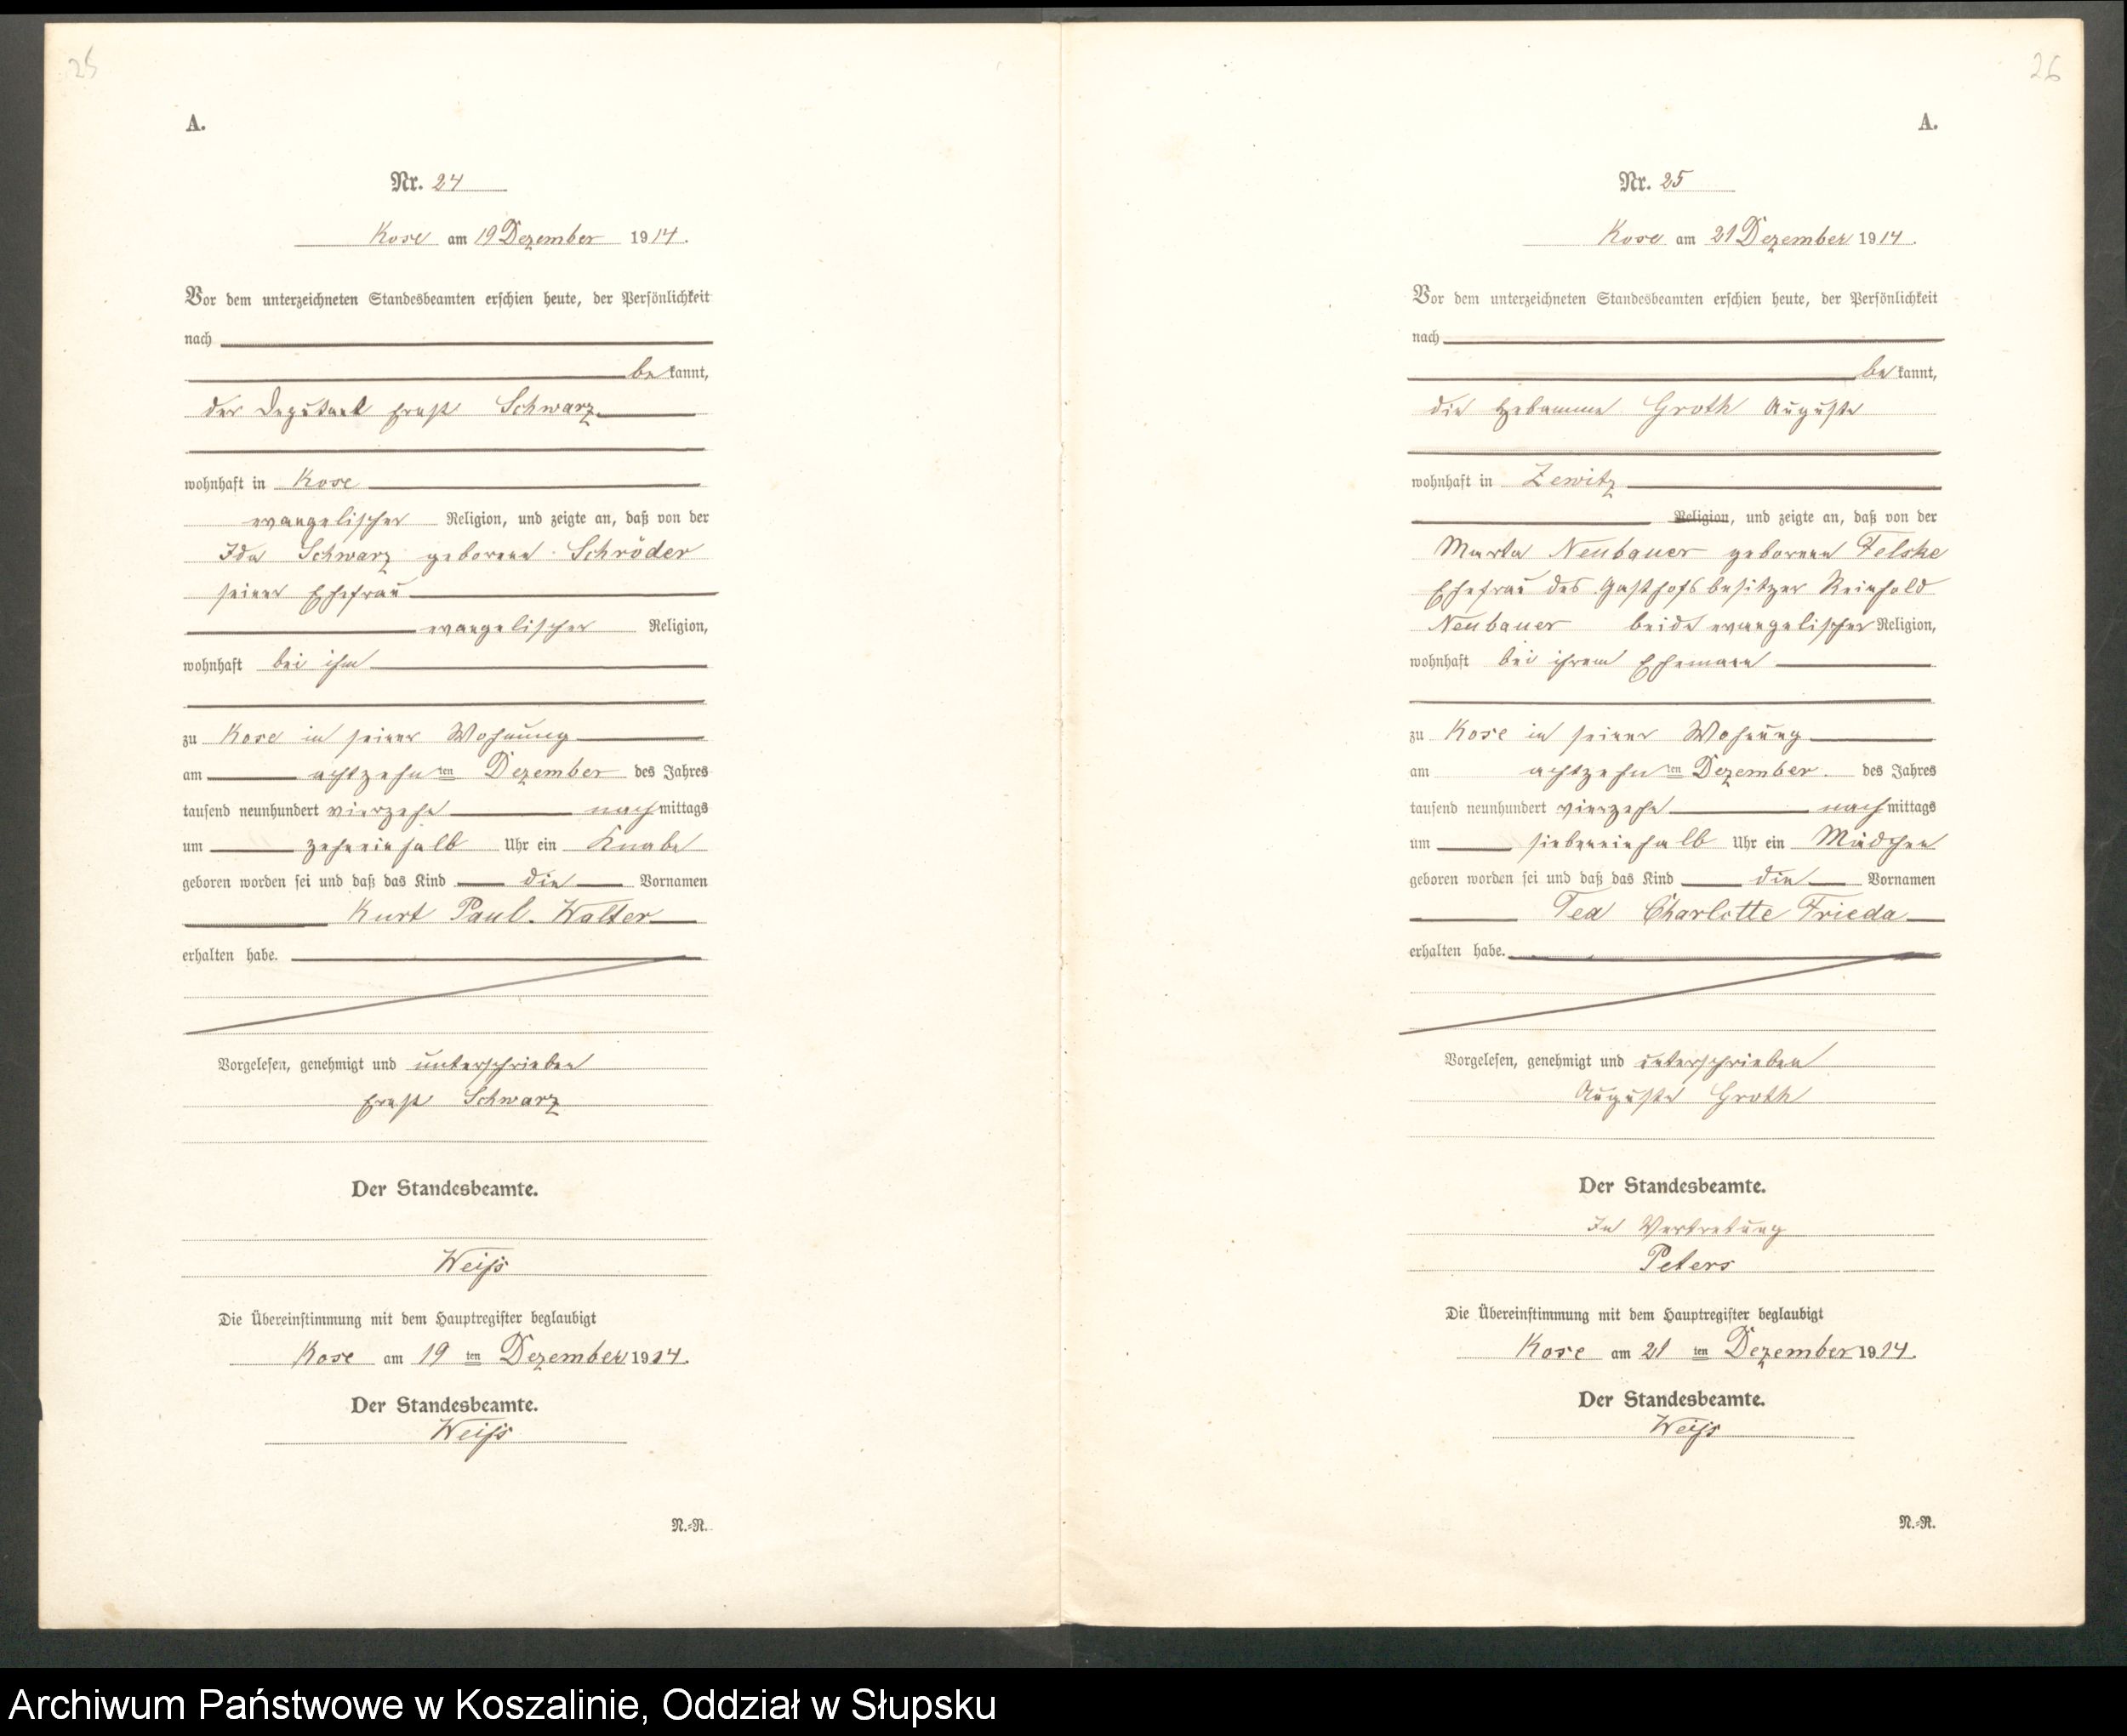 25
A.
Nr. 24
Kose am 19 Dezember 1914.
Vor dem unterzeichneten Standesbeamten erschien heute, der Persönlichkeit
nach
bekannt,
der Deputant Ernst Schwarz
wohnhaft in Kose
evangelischer Religion, und zeigte an, daß von der
Ida Schwarz geborene Schröder
seiner Ehefrau
evangelischer Religion,
wohnhaft bei ihm
zu Kose in seiner Wohnung
am achtzehnten Dezember des Jahres
tausend neunhundert vierzehn nachmittags
um zehneinhalb Uhr ein Knabe
geboren worden sei und daß das Kind die Vornamen
Kurt Paul Walter
erhalten habe.
Vorgelesen, genehmigt und unterschrieben
Ernst Schwarz
Der Standesbeamte.
Weiß
Die Übereinstimmung mit dem Hauptregister beglaubigt
Kose am 19 ten Dezember 1914.
Der Standesbeamte.
Weiß
N.=R.
26
A.
Nr. 25
Kose am 21 Dezember 1914.
Vor dem unterzeichneten Standesbeamten erschien heute, der Persönlichkeit
nach
bekannt,
die Hebamme Groth Auguste
wohnhaft in Zewitz
Religion, und zeigte an, daß von der
Marta Neubauer geborene Felske
Ehefrau des Gasthofsbesitzer Reinhold
Neubauer beide evangelischer Religion,
wohnhaft bei ihrem Ehemann
zu Kose in seiner Wohnung
am achtzehnten Dezember. des Jahres
tausend neunhundert vierzehn nachmittags
um siebeneinhalb Uhr ein Mädchen
geboren worden sei und daß das Kind die Vornamen
Tea Charlotte Frieda
erhalten habe.
Vorgelesen, genehmigt und unterschrieben
Auguste Groth
Der Standesbeamte.
In Vertretung
Peters
Die Übereinstimmung mit dem Hauptregister beglaubigt
Kose am 21 ten Dezember 1914.
Der Standesbeamte.
Weiß
N.=R.
Archiwum Państwowe w Koszalinie, Oddział w Słupsku